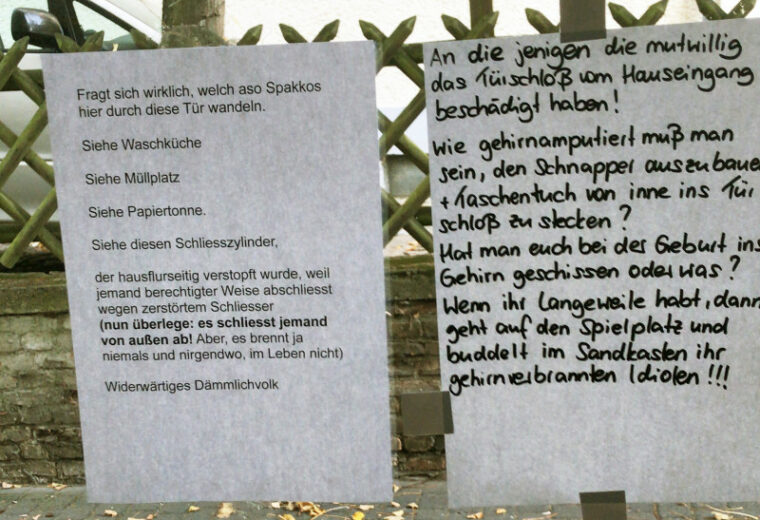 Fragt sich wirklich, welch aso Spakkos
hier durch diese Tür wandeln.
Siehe Waschküche
Siehe Müllplatz
Siehe Papiertonne.
Siehe diesen Schliesszylinder,
der hausflurseitig verstopft wurde, weil
jemand berechtigter Weise abschliesst
wegen zerstörtem Schliesser
(nun überlege: es schliesst jemand
von außen ab! Aber, es brennt ja
niemals und nirgendwo, im Leben nicht)
Widerwärtiges Dämmlichvolk
An die jenigen die mutwillig
das Türschloß vom Hauseingang
beschädigt haben!
Wie gehirnamputiert muß man
sein, den Schnapper auszubauen
+ Taschentuch von inne ins Tür
schloß zu stecken?
Hat man euch bei der Geburt ins
Gehirn geschissen oder was?
Wenn ihr Langeweile habt, dann
geht auf den Spielplatz und
buddelt im Sandkasten ihr
gehirnverbrannten Idioten!!!